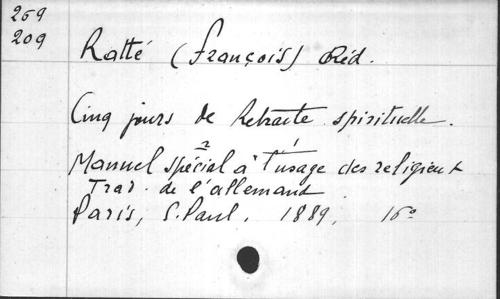 269
209
Ratté (François) Réd.
Cinq jours de Retraite spirituelle.
2 1
Manuel spécial à l'usage des religieux
Trad. de l'allemand
Paris, S. Paul, 1889, 16°